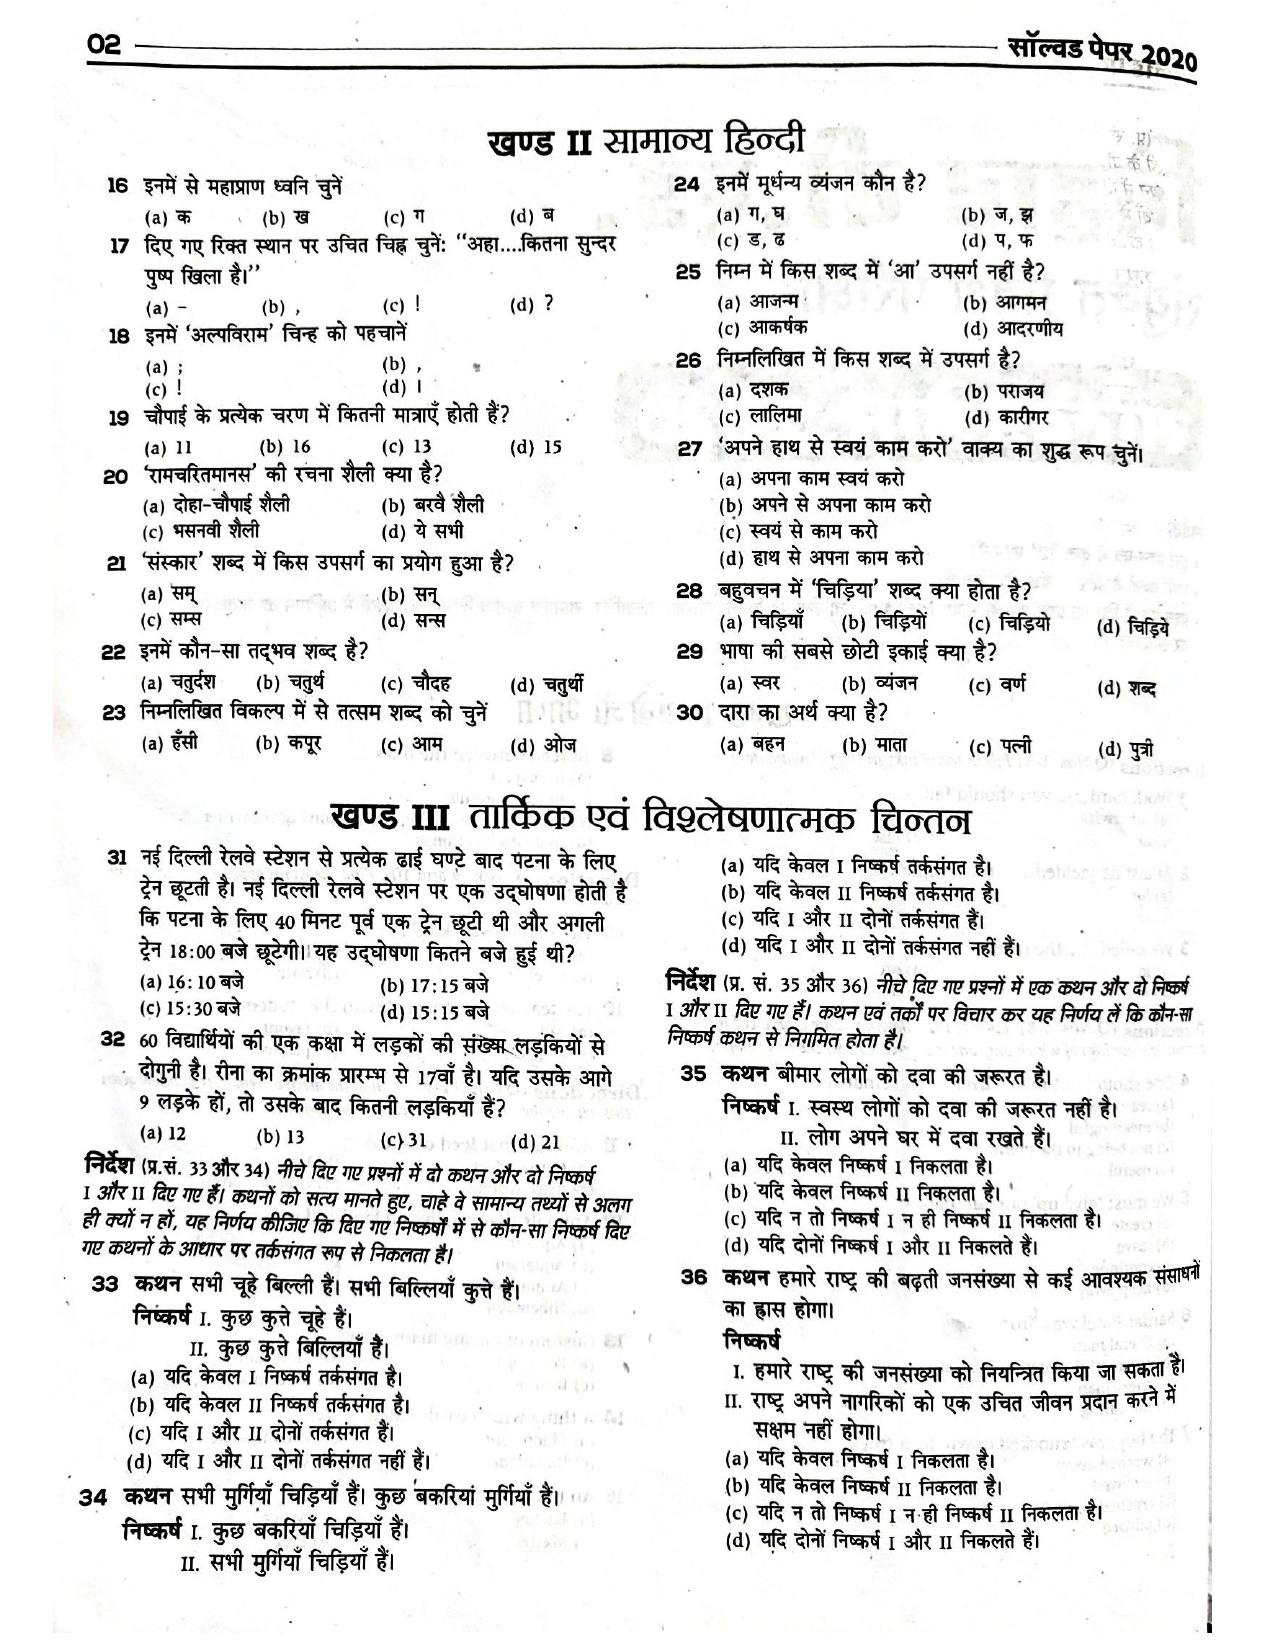 02
सॉल्वड पेपर 2020
खण्ड II सामान्य हिन्दी
16 इनमें से महाप्राण ध्वनि चुनें
(a) क (b) ख (c) ग (d) ब
17 दिए गए रिक्त स्थान पर उचित चिह्न चुनें: “अहा....कितना सुन्दर
पुष्प खिला है।”
(a) - (b) , (c) ! (d) ?
18 इनमें ‘अल्पविराम’ चिन्ह को पहचानें
(a) ; (b) ,
(c) ! (d) ।
19 चौपाई के प्रत्येक चरण में कितनी मात्राएँ होती हैं?
(a) 11 (b) 16 (c) 13 (d) 15
20 ‘रामचरितमानस’ की रचना शैली क्या है?
(a) दोहा-चौपाई शैली (b) बरवै शैली
(c) भसनवी शैली (d) ये सभी
21 ‘संस्कार’ शब्द में किस उपसर्ग का प्रयोग हुआ है?
(a) सम् (b) सन्
(c) सम्स (d) सन्स
22 इनमें कौन-सा तद्भव शब्द है?
(a) चतुर्दश (b) चतुर्थ (c) चौदह (d) चतुर्थी
23 निम्नलिखित विकल्प में से तत्सम शब्द को चुनें
(a) हँसी (b) कपूर (c) आम (d) ओज
24 इनमें मूर्धन्य व्यंजन कौन है?
(a) ग, घ (b) ज, झ
(c) ड, ढ (d) प, फ
25 निम्न में किस शब्द में ‘आ’ उपसर्ग नहीं है?
(a) आजन्म (b) आगमन
(c) आकर्षक (d) आदरणीय
26 निम्नलिखित में किस शब्द में उपसर्ग है?
(a) दशक (b) पराजय
(c) लालिमा (d) कारीगर
27 ‘अपने हाथ से स्वयं काम करो’ वाक्य का शुद्ध रूप चुनें।
(a) अपना काम स्वयं करो
(b) अपने से अपना काम करो
(c) स्वयं से काम करो
(d) हाथ से अपना काम करो
28 बहुवचन में ‘चिड़िया’ शब्द क्या होता है?
(a) चिड़ियाँ (b) चिड़ियों (c) चिड़ियो (d) चिड़िये
29 भाषा की सबसे छोटी इकाई क्या है?
(a) स्वर (b) व्यंजन (c) वर्ण (d) शब्द
30 दारा का अर्थ क्या है?
(a) बहन (b) माता (c) पत्नी (d) पुत्री
खण्ड III तार्किक एवं विश्लेषणात्मक चिन्तन
31 नई दिल्ली रेलवे स्टेशन से प्रत्येक ढाई घण्टे बाद पटना के लिए
ट्रेन छूटती है। नई दिल्ली रेलवे स्टेशन पर एक उद्घोषणा होती है
कि पटना के लिए 40 मिनट पूर्व एक ट्रेन छूटी थी और अगली
ट्रेन 18:00 बजे छूटेगी। यह उद्घोषणा कितने बजे हुई थी?
(a) 16:10 बजे (b) 17:15 बजे
(c) 15:30 बजे (d) 15:15 बजे
32 60 विद्यार्थियों की एक कक्षा में लड़कों की संख्या लड़कियों से
दोगुनी है। रीना का क्रमांक प्रारम्भ से 17वाँ है। यदि उसके आगे
9 लड़के हों, तो उसके बाद कितनी लड़कियाँ हैं?
(a) 12 (b) 13 (c) 31 (d) 21
निर्देश (प्र.सं. 33 और 34) नीचे दिए गए प्रश्नों में दो कथन और दो निष्कर्ष
I और II दिए गए हैं। कथनों को सत्य मानते हुए, चाहे वे सामान्य तथ्यों से अलग
ही क्यों न हों, यह निर्णय कीजिए कि दिए गए निष्कर्षों में से कौन-सा निष्कर्ष दिए
गए कथनों के आधार पर तर्कसंगत रूप से निकलता है।
33 कथन सभी चूहे बिल्ली हैं। सभी बिल्लियाँ कुत्ते हैं।
निष्कर्ष I. कुछ कुत्ते चूहे हैं।
II. कुछ कुत्ते बिल्लियाँ हैं।
(a) यदि केवल I निष्कर्ष तर्कसंगत है।
(b) यदि केवल II निष्कर्ष तर्कसंगत है।
(c) यदि I और II दोनों तर्कसंगत हैं।
(d) यदि I और II दोनों तर्कसंगत नहीं हैं।
34 कथन सभी मुर्गियाँ चिड़ियाँ हैं। कुछ बकरियां मुर्गियाँ हैं।
निष्कर्ष I. कुछ बकरियाँ चिड़ियाँ हैं।
II. सभी मुर्गियाँ चिड़ियाँ हैं।
(a) यदि केवल I निष्कर्ष तर्कसंगत है।
(b) यदि केवल II निष्कर्ष तर्कसंगत है।
(c) यदि I और II दोनों तर्कसंगत हैं।
(d) यदि I और II दोनों तर्कसंगत नहीं हैं।
निर्देश (प्र. सं. 35 और 36) नीचे दिए गए प्रश्नों में एक कथन और दो निष्कर्ष
I और II दिए गए हैं। कथन एवं तर्कों पर विचार कर यह निर्णय लें कि कौन-सा
निष्कर्ष कथन से निगमित होता है।
35 कथन बीमार लोगों को दवा की जरूरत है।
निष्कर्ष I. स्वस्थ लोगों को दवा की जरूरत नहीं है।
II. लोग अपने घर में दवा रखते हैं।
(a) यदि केवल निष्कर्ष I निकलता है।
(b) यदि केवल निष्कर्ष II निकलता है।
(c) यदि न तो निष्कर्ष I न ही निष्कर्ष II निकलता है।
(d) यदि दोनों निष्कर्ष I और II निकलते हैं।
36 कथन हमारे राष्ट्र की बढ़ती जनसंख्या से कई आवश्यक संसाधनों
का ह्रास होगा।
निष्कर्ष
I. हमारे राष्ट्र की जनसंख्या को नियन्त्रित किया जा सकता है।
II. राष्ट्र अपने नागरिकों को एक उचित जीवन प्रदान करने में
सक्षम नहीं होगा।
(a) यदि केवल निष्कर्ष I निकलता है।
(b) यदि केवल निष्कर्ष II निकलता है।
(c) यदि न तो निष्कर्ष I न ही निष्कर्ष II निकलता है।
(d) यदि दोनों निष्कर्ष I और II निकलते हैं।